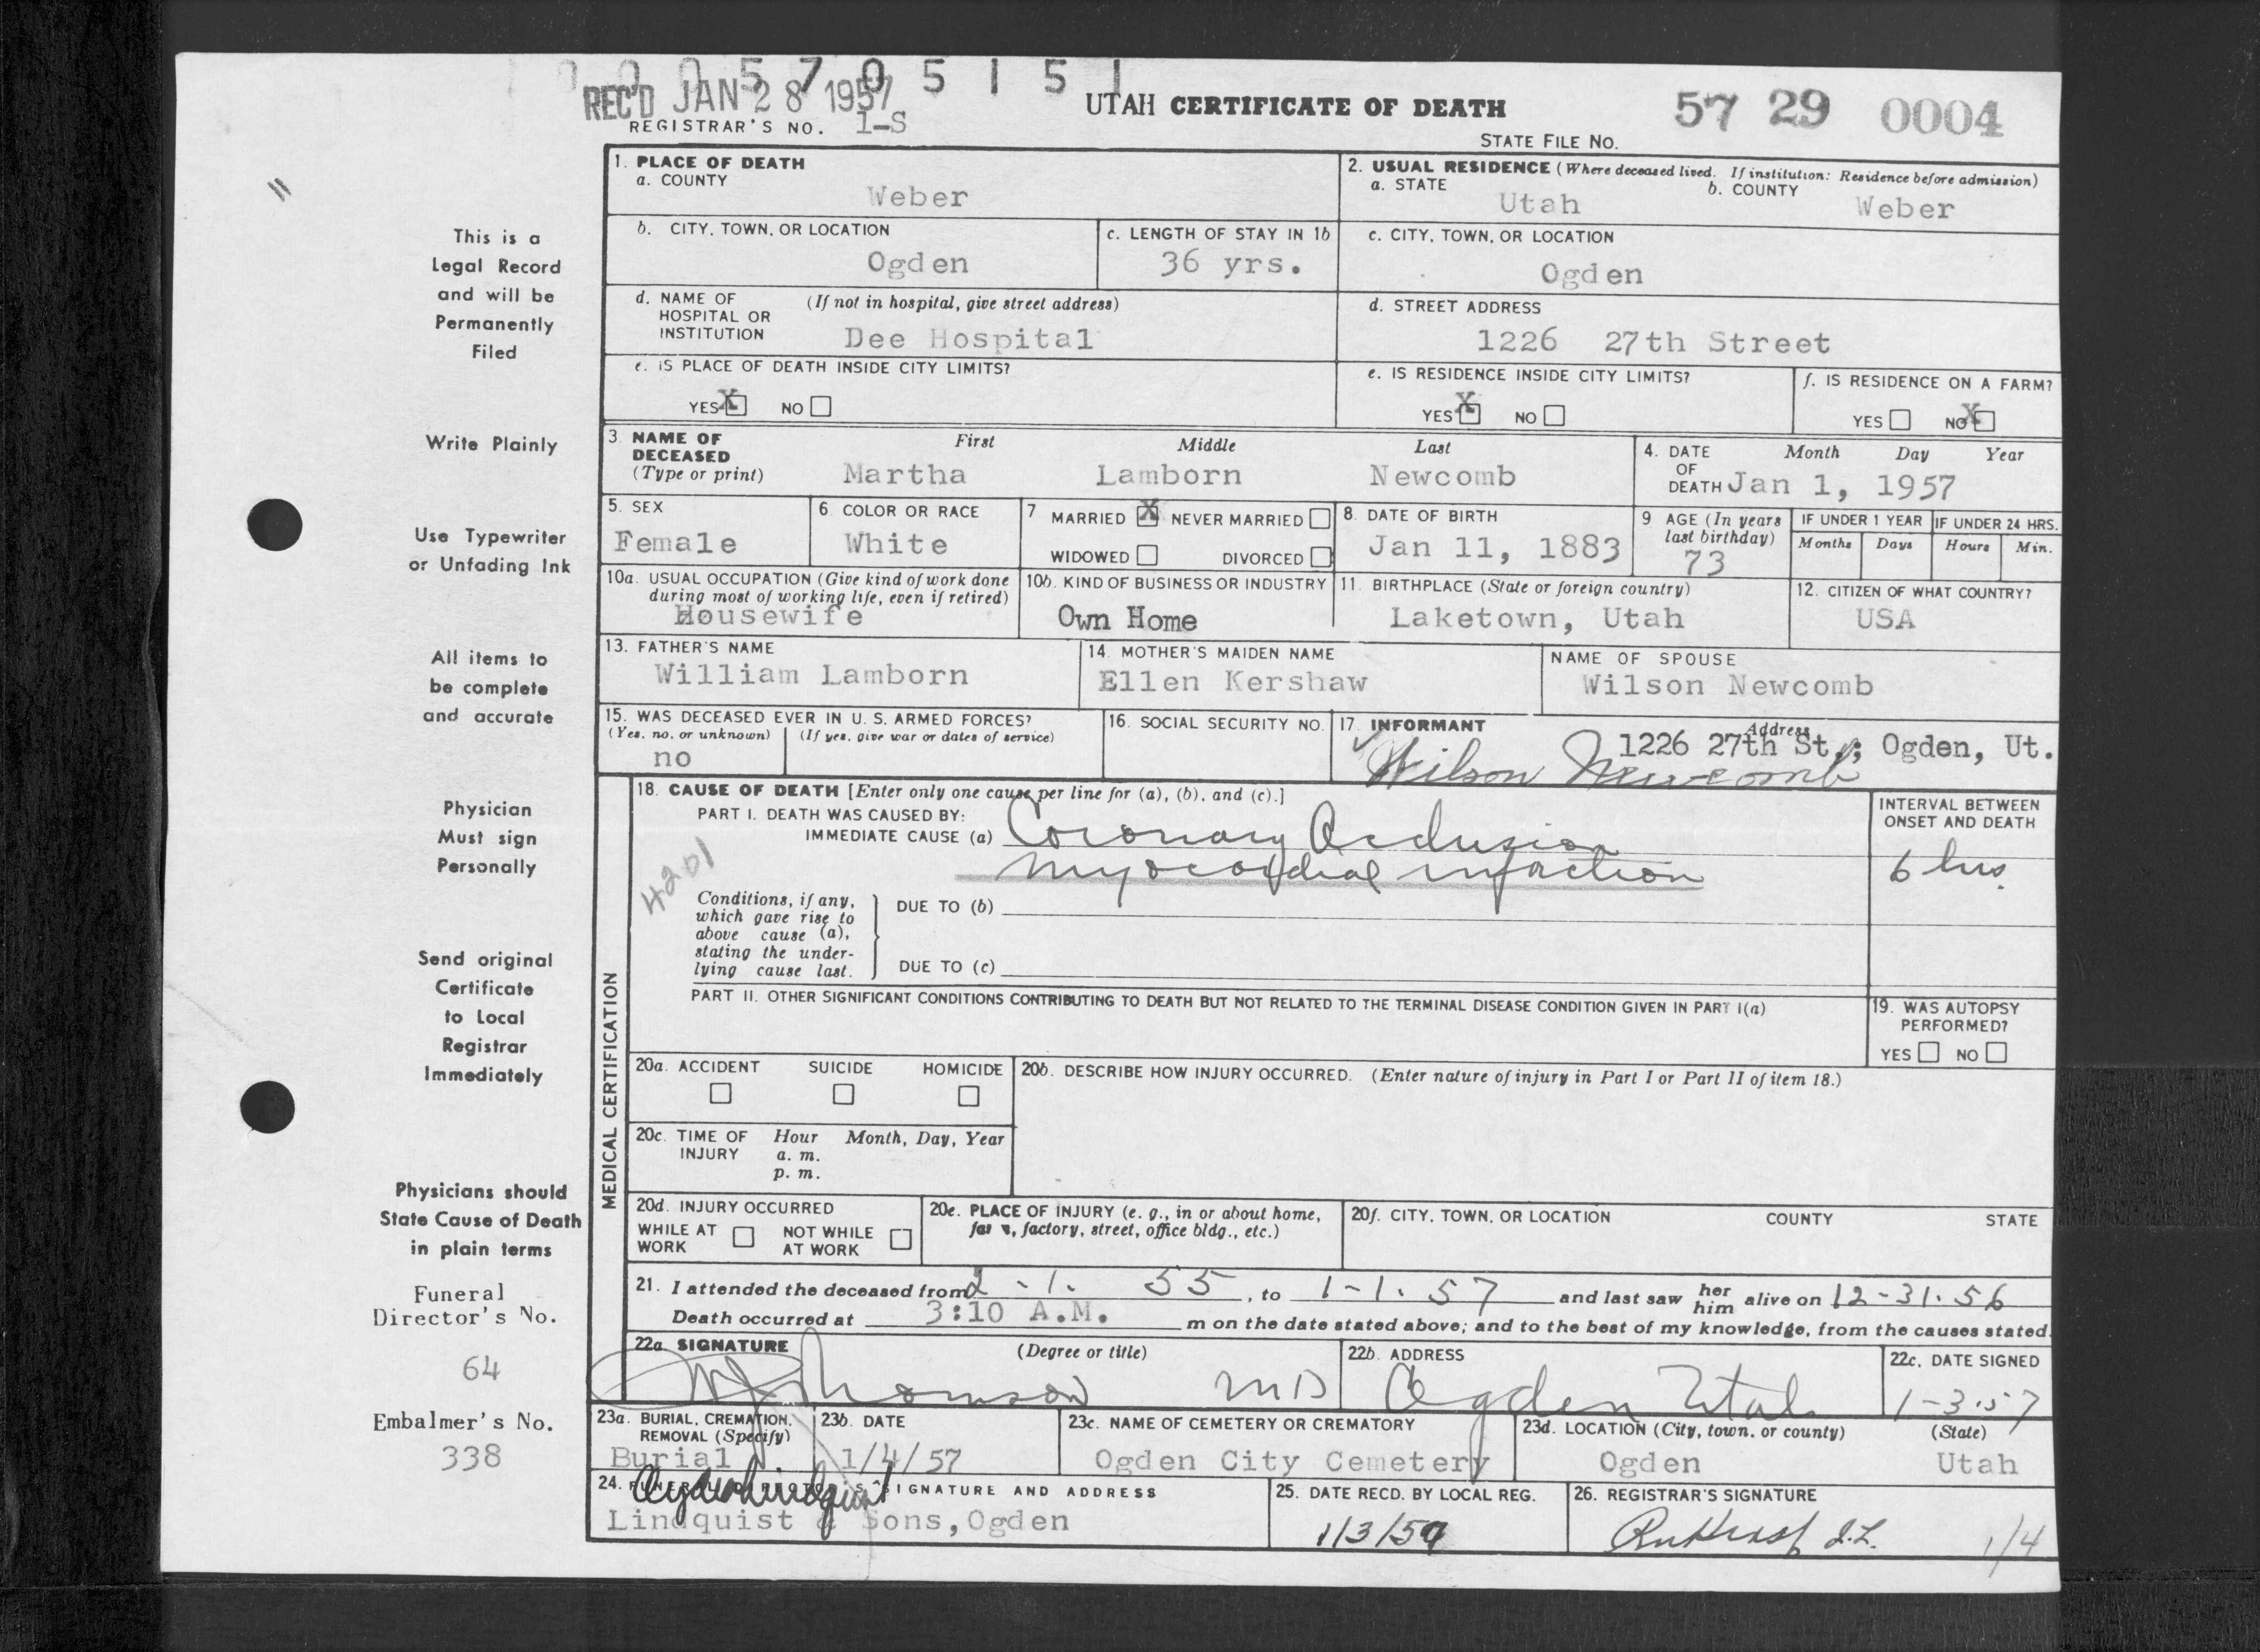 0 0 0 5 7 0 5 1 5 1
REC'D JAN 28 1957
REGISTRAR'S NO. 1-S
UTAH CERTIFICATE OF DEATH
57 29 0004
STATE FILE NO.
This is a
Legal Record
and will be
Permanently
Filed
Write Plainly
Use Typewriter
or Unfading Ink
All items to
be complete
and accurate
Physician
Must sign
Personally
Send original
Certificate
to Local
Registrar
Immediately
Physicians should
State Cause of Death
in plain terms
Funeral
Director's No.
64
Embalmer's No.
338
1. PLACE OF DEATH
a. COUNTY
Weber
2. USUAL RESIDENCE (Where deceased lived. If institution: Residence before admission)
a. STATE Utah b. COUNTY Weber
b. CITY, TOWN, OR LOCATION
Ogden
c. LENGTH OF STAY IN 1b
36 yrs.
c. CITY, TOWN, OR LOCATION
Ogden
d. NAME OF HOSPITAL OR INSTITUTION (If not in hospital, give street address)
Dee Hospital
d. STREET ADDRESS
1226 27th Street
e. IS PLACE OF DEATH INSIDE CITY LIMITS?
YES X NO
e. IS RESIDENCE INSIDE CITY LIMITS?
YES X NO
f. IS RESIDENCE ON A FARM?
YES NO X
3. NAME OF DECEASED (Type or print)
First Middle Last
Martha Lamborn Newcomb
4. DATE OF DEATH Month Day Year
Jan 1, 1957
5. SEX
Female
6 COLOR OR RACE
White
7 MARRIED X NEVER MARRIED
WIDOWED DIVORCED
8. DATE OF BIRTH
Jan 11, 1883
9 AGE (In years last birthday)
73
IF UNDER 1 YEAR
Months Days
IF UNDER 24 HRS.
Hours Min.
10a. USUAL OCCUPATION (Give kind of work done during most of working life, even if retired)
Housewife
10b. KIND OF BUSINESS OR INDUSTRY
Own Home
11. BIRTHPLACE (State or foreign country)
Laketown, Utah
12. CITIZEN OF WHAT COUNTRY?
USA
13. FATHER'S NAME
William Lamborn
14. MOTHER'S MAIDEN NAME
Ellen Kershaw
NAME OF SPOUSE
Wilson Newcomb
15. WAS DECEASED EVER IN U. S. ARMED FORCES?
(Yes, no, or unknown) (If yes, give war or dates of service)
no
16. SOCIAL SECURITY NO.
17. INFORMANT Address
1226 27th St., Ogden, Ut.
Wilson Newcomb
MEDICAL CERTIFICATION
18. CAUSE OF DEATH [Enter only one cause per line for (a), (b), and (c).]
PART I. DEATH WAS CAUSED BY:
IMMEDIATE CAUSE (a) Coronary Occlusion
Myocordial infaction
4201
INTERVAL BETWEEN ONSET AND DEATH
6 hrs.
Conditions, if any, which gave rise to above cause (a), stating the underlying cause last.
DUE TO (b)
DUE TO (c)
PART II. OTHER SIGNIFICANT CONDITIONS CONTRIBUTING TO DEATH BUT NOT RELATED TO THE TERMINAL DISEASE CONDITION GIVEN IN PART I(a)
19. WAS AUTOPSY PERFORMED?
YES NO
20a. ACCIDENT SUICIDE HOMICIDE
20b. DESCRIBE HOW INJURY OCCURRED. (Enter nature of injury in Part I or Part II of item 18.)
20c. TIME OF INJURY Hour Month, Day, Year
a. m.
p. m.
20d. INJURY OCCURRED
WHILE AT WORK NOT WHILE AT WORK
20e. PLACE OF INJURY (e. g., in or about home, farm, factory, street, office bldg., etc.)
20f. CITY, TOWN, OR LOCATION COUNTY STATE
21. I attended the deceased from 2 - 1. 55, to 1-1.57 and last saw her him alive on 12-31.56
Death occurred at 3:10 A.M. m on the date stated above; and to the best of my knowledge, from the causes stated.
22a. SIGNATURE (Degree or title)
Thomson MD
22b. ADDRESS
Ogden Utah
22c. DATE SIGNED
1-3.57
23a. BURIAL, CREMATION, REMOVAL (Specify)
Burial
23b. DATE
1/4/57
23c. NAME OF CEMETERY OR CREMATORY
Ogden City Cemetery
23d. LOCATION (City, town, or county) (State)
Ogden Utah
24. FUNERAL DIRECTOR'S SIGNATURE AND ADDRESS
Lindquist & Sons, Ogden
25. DATE RECD. BY LOCAL REG.
1/3/57
26. REGISTRAR'S SIGNATURE
1/4